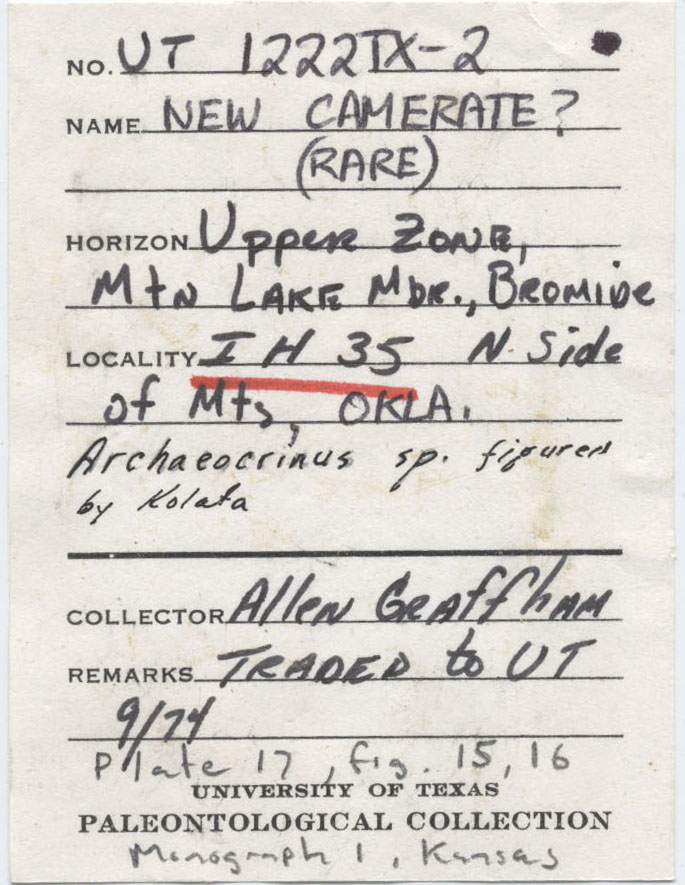 NO. UT 1222TX-2
NAME NEW CAMERATE?
(RARE)
HORIZON Upper ZONE,
Mtn LAKE Mbr., BROMIDE
LOCALITY I H 35 N. Side
of Mts, OKLA.
Archaeocrinus sp. figured
by Kolata
COLLECTOR Allen Graffham
REMARKS TRADED to UT
9/74
Plate 17, fig. 15, 16
UNIVERSITY OF TEXAS
PALEONTOLOGICAL COLLECTION
Monograph 1, Kansas